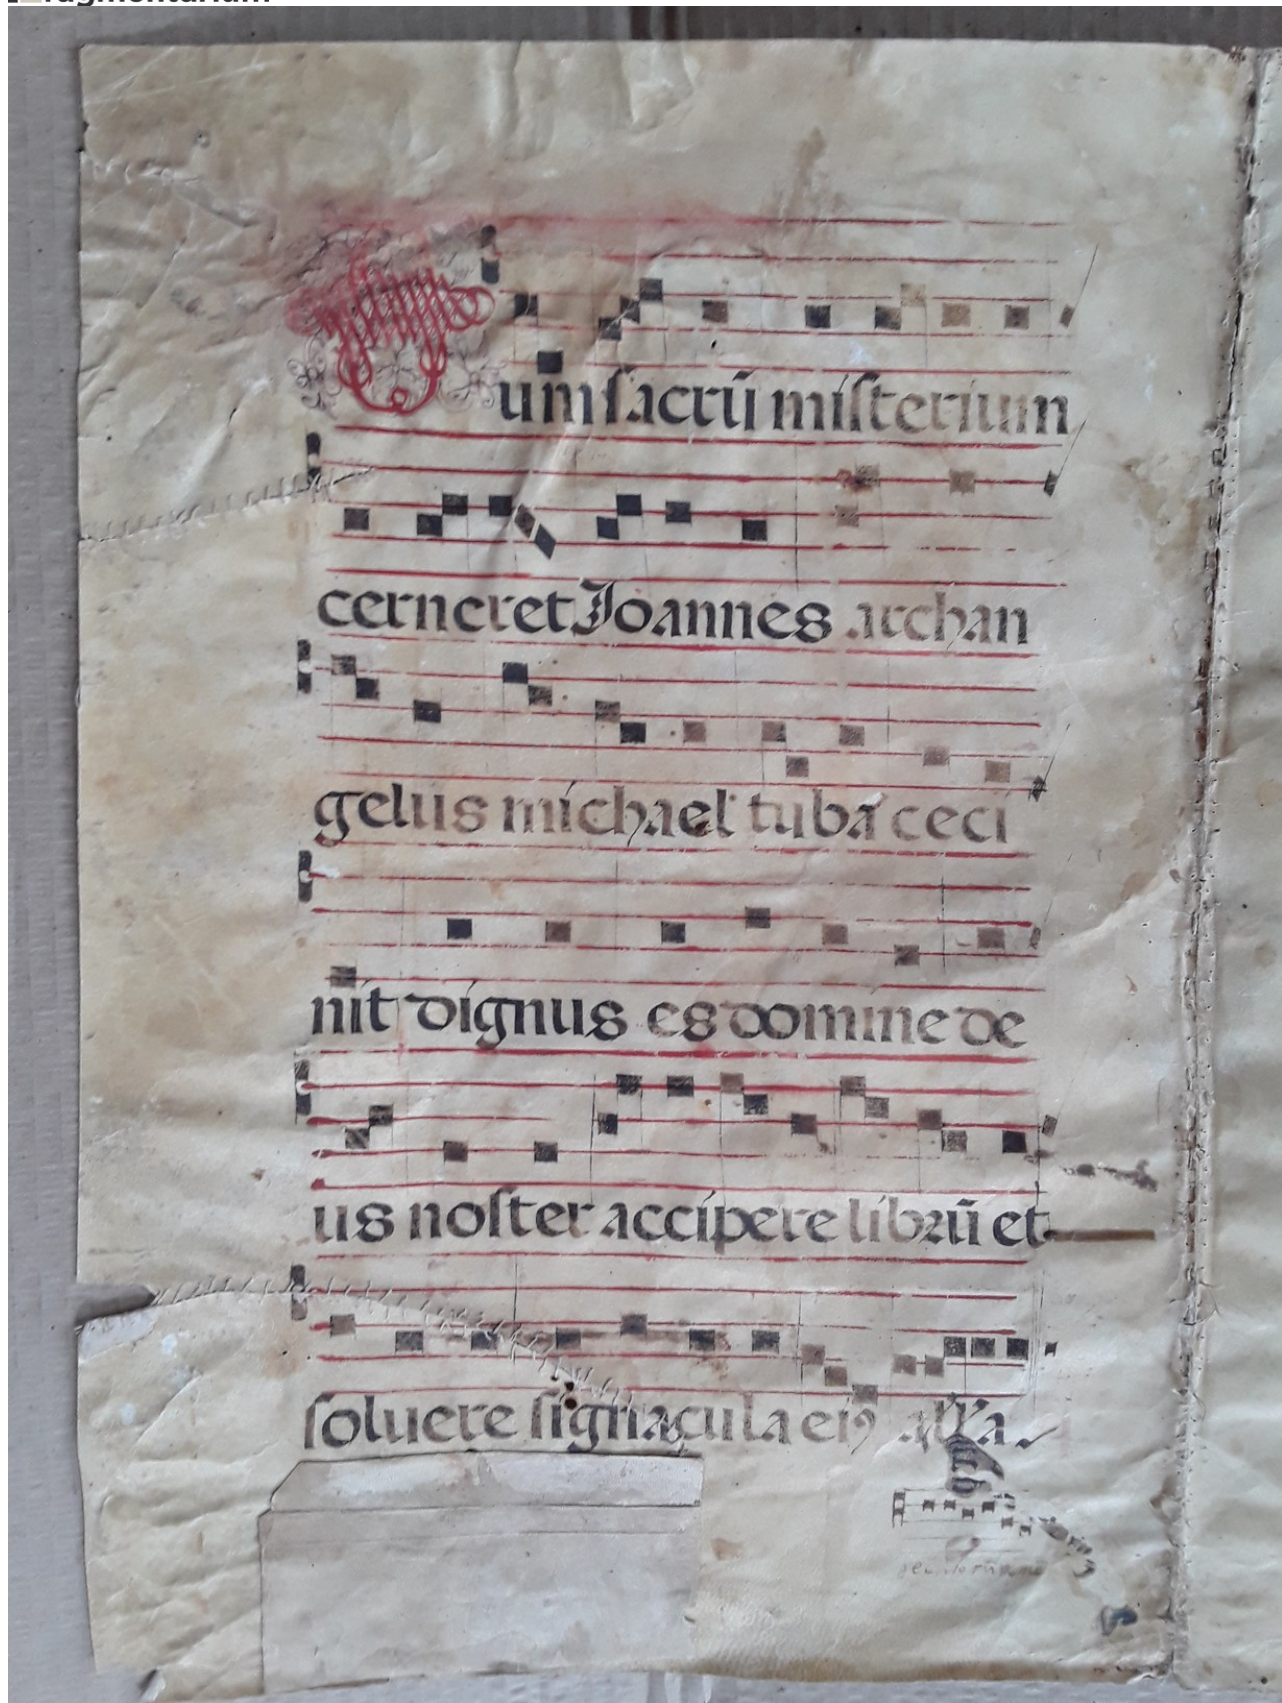 Dum sacrū misterium
cerneret Joannes archan
gelus michael tuba ceci
nit dignus es domine de
us noster accipere librū et
soluere signacula eiꝰ all'a